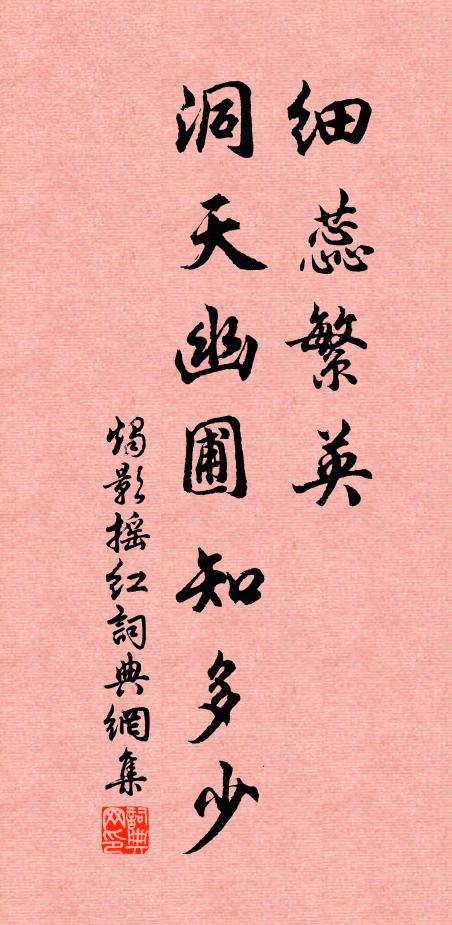 细蕊繁英
洞天幽圃知多少
烛影摇红詞典網集
詞典网印